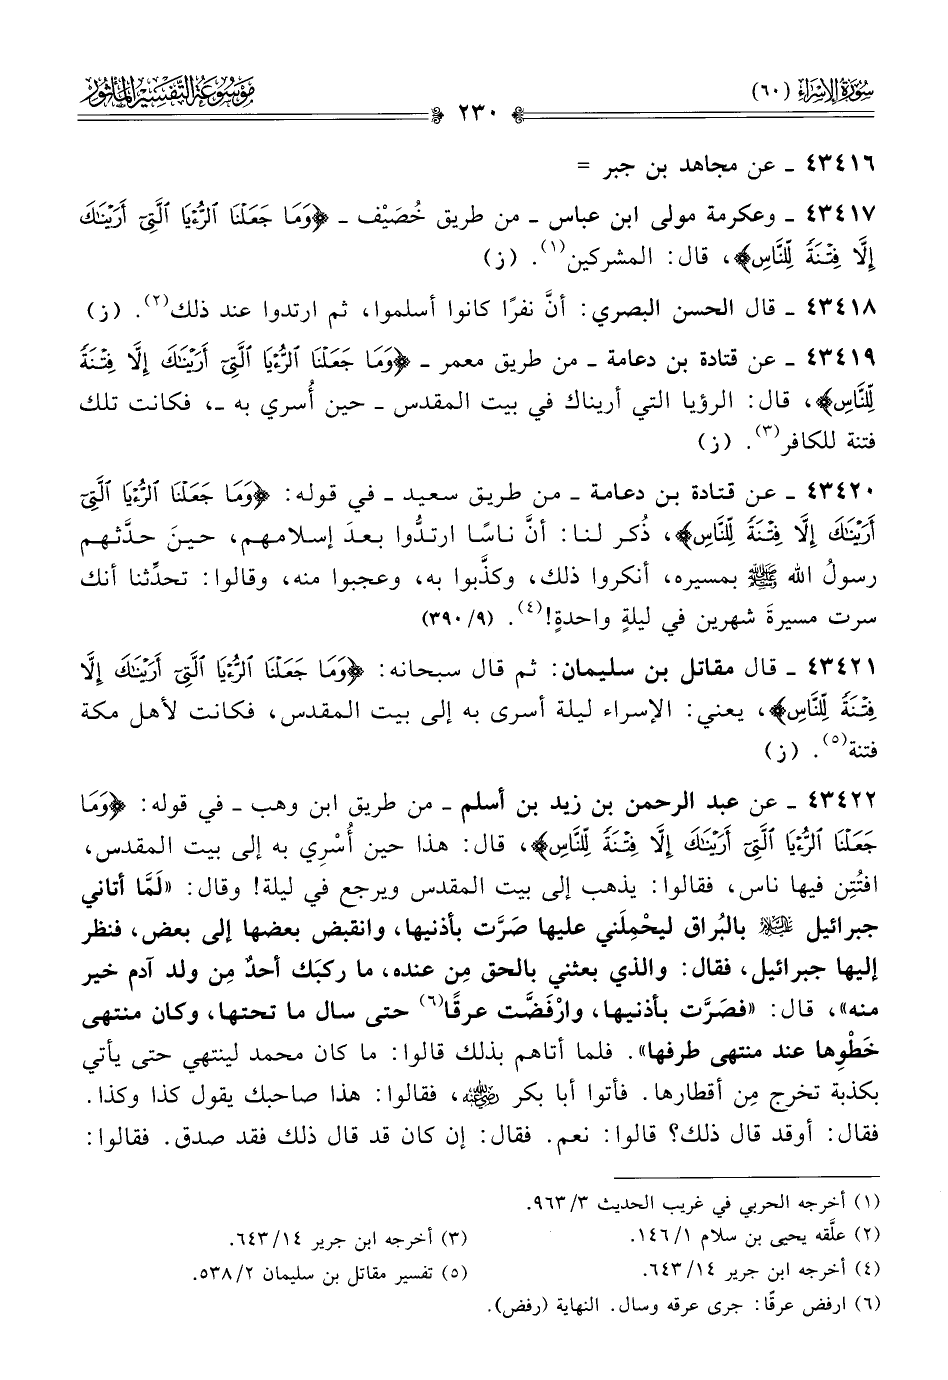 سُورَةُ الإِسْرَاءِ (٦٠)
٢٣٠
مَوْسُوعَةُ التَّفْسِيرِ المَأْثُورِ
٤٣٤١٦ ـ عن مجاهد بن جبر =
٤٣٤١٧ ـ وعكرمة مولى ابن عباس ـ من طريق خُصَيْف ـ ﴿وَمَا جَعَلْنَا ٱلرُّءْيَا ٱلَّتِىٓ أَرَيْنَٰكَ
إِلَّا فِتْنَةً لِّلنَّاسِ﴾، قال: المشركين(١). (ز)
٤٣٤١٨ ـ قال الحسن البصري: أنَّ نفرًا كانوا أسلموا، ثم ارتدوا عند ذلك(٢). (ز)
٤٣٤١٩ ـ عن قتادة بن دعامة ـ من طريق معمر ـ ﴿وَمَا جَعَلْنَا ٱلرُّءْيَا ٱلَّتِىٓ أَرَيْنَٰكَ إِلَّا فِتْنَةً
لِّلنَّاسِ﴾، قال: الرؤيا التي أريناك في بيت المقدس ـ حين أُسري به ـ، فكانت تلك
فتنة للكافر(٣). (ز)
٤٣٤٢٠ ـ عن قتادة بن دعامة ـ من طريق سعيد ـ في قوله: ﴿وَمَا جَعَلْنَا ٱلرُّءْيَا ٱلَّتِىٓ
أَرَيْنَٰكَ إِلَّا فِتْنَةً لِّلنَّاسِ﴾، ذُكر لنا: أنَّ ناسًا ارتدُّوا بعدَ إسلامهم، حينَ حدَّثهم
رسولُ الله ﷺ بمسيره، أنكروا ذلك، وكذَّبوا به، وعجبوا منه، وقالوا: تحدِّثنا أنك
سرت مسيرةَ شهرين في ليلةٍ واحدةٍ!(٤). (٣٩٠/٩)
٤٣٤٢١ ـ قال مقاتل بن سليمان: ثم قال سبحانه: ﴿وَمَا جَعَلْنَا ٱلرُّءْيَا ٱلَّتِىٓ أَرَيْنَٰكَ إِلَّا
فِتْنَةً لِّلنَّاسِ﴾، يعني: الإسراء ليلة أسرى به إلى بيت المقدس، فكانت لأهل مكة
فتنة(٥). (ز)
٤٣٤٢٢ ـ عن عبد الرحمن بن زيد بن أسلم ـ من طريق ابن وهب ـ في قوله: ﴿وَمَا
جَعَلْنَا ٱلرُّءْيَا ٱلَّتِىٓ أَرَيْنَٰكَ إِلَّا فِتْنَةً لِّلنَّاسِ﴾، قال: هذا حين أُسْرِي به إلى بيت المقدس،
افتُتِن فيها ناس، فقالوا: يذهب إلى بيت المقدس ويرجع في ليلة! وقال: «لَمَّا أتاني
جبرائيل عليه السلام بالبُراق ليحْمِلَني عليها صَرَّت بأذنيها، وانقبض بعضها إلى بعض، فنظر
إليها جبرائيل، فقال: والذي بعثني بالحق مِن عنده، ما ركبَك أحدٌ مِن ولد آدم خير
منه»، قال: «فصَرَّت بأذنيها، وارْفَضَّت عرقًا(٦) حتى سال ما تحتها، وكان منتهى
خَطْوِها عند منتهى طرفها». فلما أتاهم بذلك قالوا: ما كان محمد لينتهي حتى يأتي
بكذبة تخرج مِن أقطارها. فأتوا أبا بكر رضي الله عنه، فقالوا: هذا صاحبك يقول كذا وكذا.
فقال: أوقد قال ذلك؟ قالوا: نعم. فقال: إن كان قد قال ذلك فقد صدق. فقالوا:
(١) أخرجه الحربي في غريب الحديث ٩٦٣/٣.
(٢) علَّقه يحيى بن سلام ١٤٦/١.
(٣) أخرجه ابن جرير ٦٤٣/١٤.
(٤) أخرجه ابن جرير ٦٤٣/١٤.
(٥) تفسير مقاتل بن سليمان ٥٣٨/٢.
(٦) ارفض عرقًا: جرى عرقه وسال. النهاية (رفض).